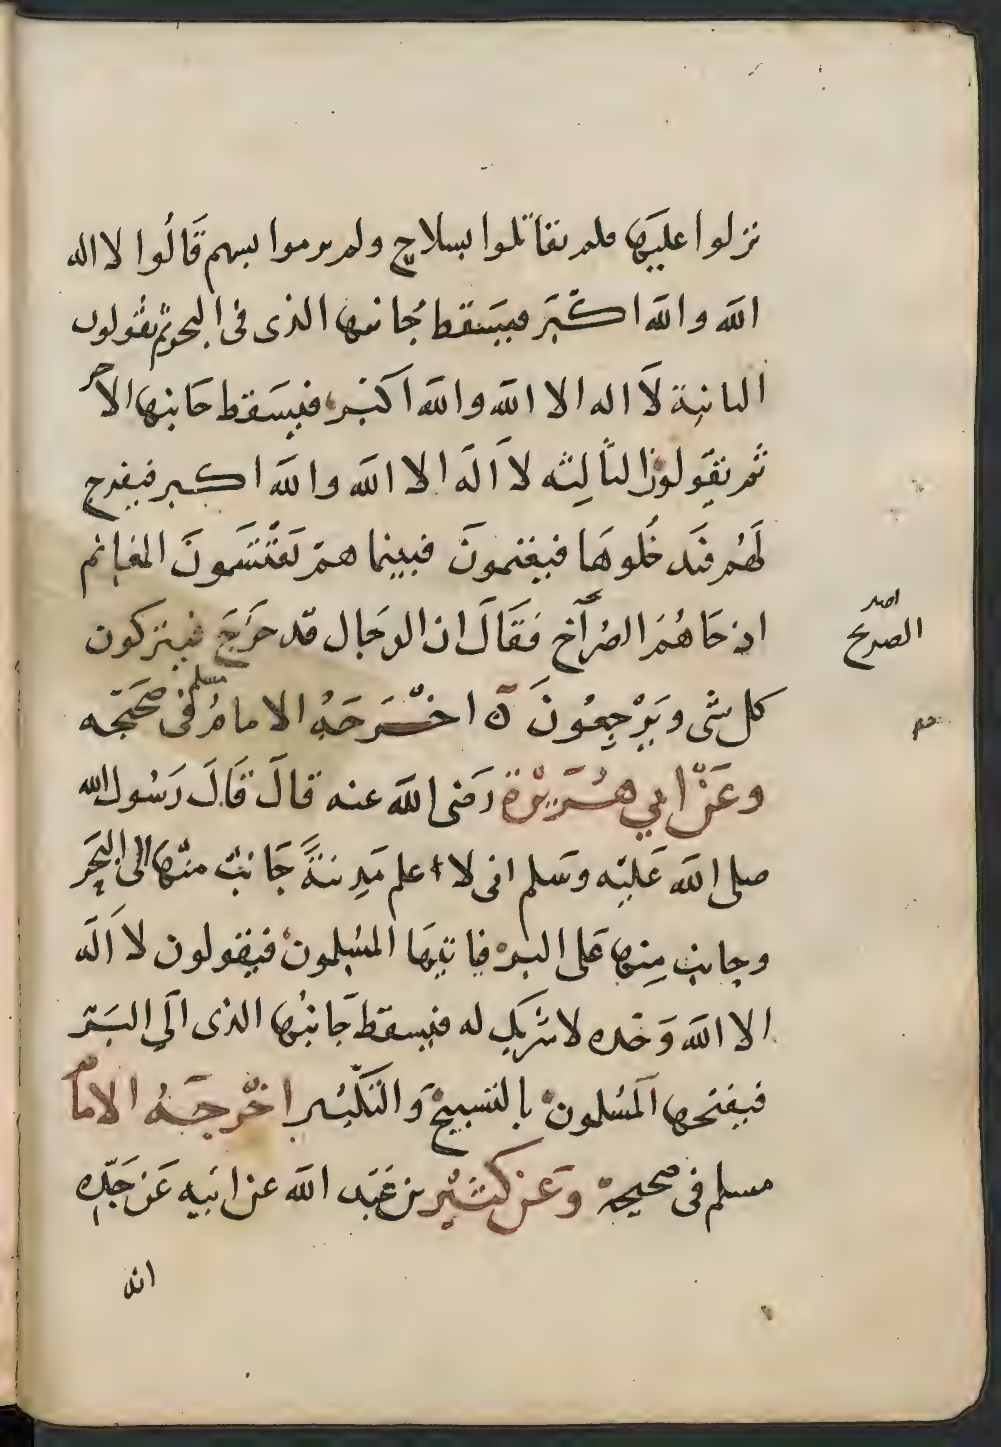 نزلوا عليها فلم يقاتلوا بسلاح ولم يرموا بسهم قَالُوا لا اله
الله والله اكبَر فيَسقط جُانبها الذى فى البحر ثم يقولون
الثانية لَا اله الا الله والله اكبر فيسَقط جَانبها الاخر
ثم يقَولون الثالثه لا اله الا الله والله اكبر فيفرج
لَهُم فيَدخُلوهَا فيغنمونَ فبينما هم يَقتَسَمونَ المغانم
اذ جَاهُمُ الصُرَاخ فقَالَ ان الدجال قد خرَجَ فيتركون
كل شى ويَرْجِعُونَ ه اخرَجَهُ الامامُ مسلم فى صحَيحه
وعَن ابي هُرَيرَة رَضى الله عنه قالَ قَالَ رَسُول الله
صلى الله عَليه وسَلم انى لا اعلم مَدِينةً جَانب منها الى البَحَر
وجانب مِنها عَلى البر فياتيهَا المسُلمون فيقولون لا اله
الا الله وَحَده لا شريك له فيسقط جَانبُها الذى الي البَر
فيفتحها المَسُلمون بالتسبيح وَالتكبُير اخرجَهُ الامام
مسلم فى صحيحه وَعَن كثيُر بن عَبَد الله عن ابَيه عَن جَدِّه
انه
الصريح